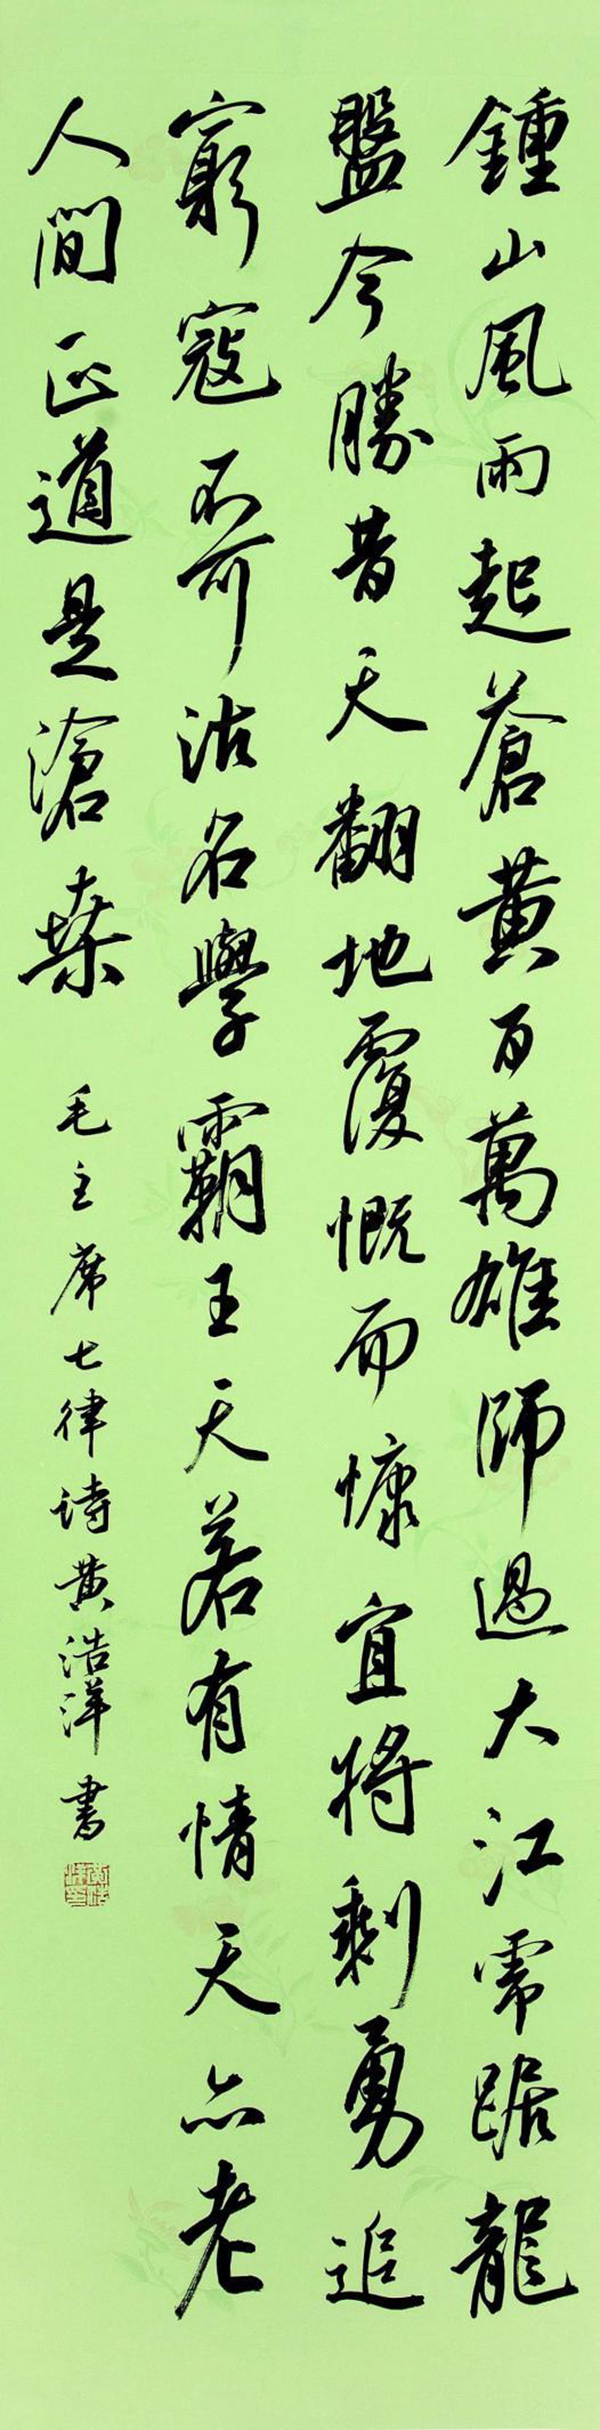 鍾山風雨起蒼黄百萬雄師過大江虎踞龍
盤今勝昔天翻地覆慨而慷宜將剩勇追
窮寇不可沽名學霸王天若有情天亦老
人間正道是滄桑
毛主席七律诗黄浩洋書